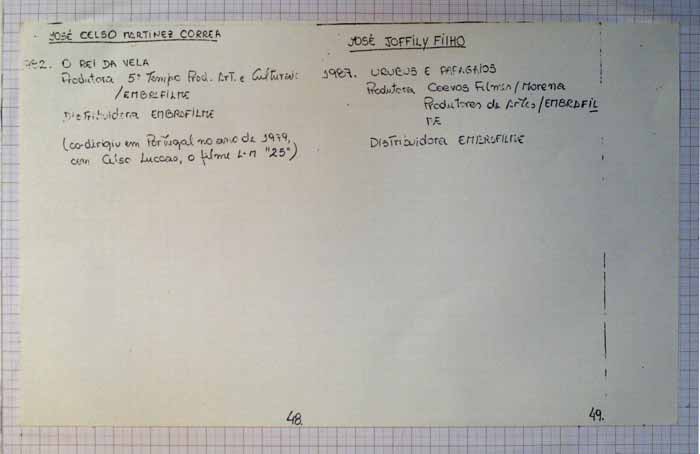 JOSÉ CELSO MARTINEZ CORREA
982. O REI DA VELA
Produtora 5º Tempo Prod. Art. e Culturais
/EMBRAFILME
Distribuidora EMBRAFILME
(co-dirigiu em Portugal no ano de 1979,
com Celso Luccas, o filme L.M "25")
48.
JOSÉ JOFFILY FILHO
1987. URUBUS E PAPAGAIOS
Produtora Coevos Filmes/Morena
Produtores de Artes/EMBRAFIL
ME
Distribuidora EMBRAFILME
49.